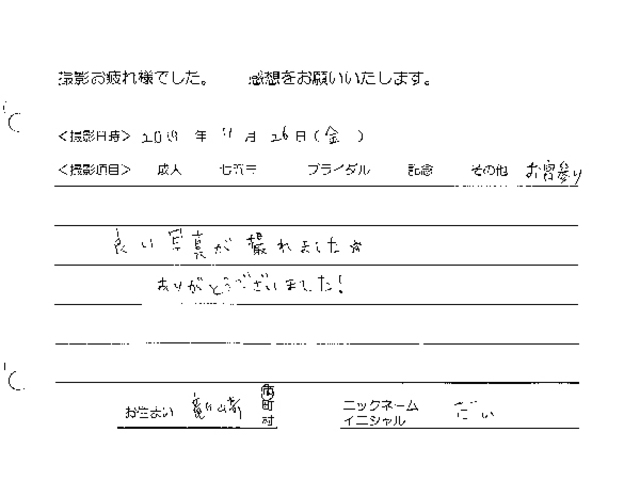 撮影お疲れ様でした。 感想をお願いいたします。
<撮影日時> 年 月 26日(金)
<撮影項目> 成人 七五三 ブライダル 記念 その他 お宮参り
良い写真が撮れました☆
ありがとうございました!
お住まい 市町村
ニックネーム イニシャル だい